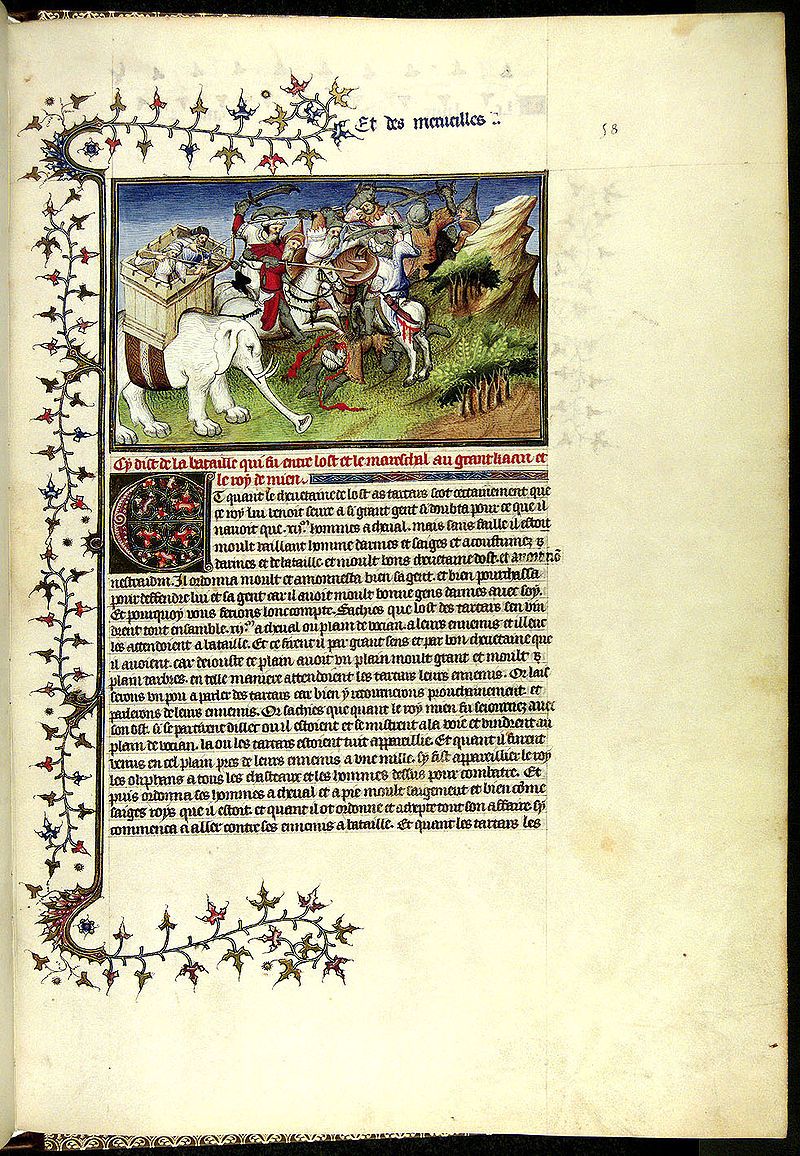 Et des merueilles
58
Cy dist de la bataille qui fu entre lost et le mareschal au grant kaan et
le roy de mien.
Et quant le cheuetaine de lost as tartars scot certainement que
ce roy lui venoit seure a si grant gent si doubta pour ce que il
nauoit que .xij.m hommes a cheual. mais sans faille il estoit
moult vaillant homme darmes et saiges et acoustumez
darmes et de bataille et moult bons cheuetaine dost. et
nestraudin. Il ordonna moult et amonnesta bien sa gent. et bien pourchassa
pour deffendre lui et sa gent car il auoit moult bonne gens darmes auec soy.
Et pourquoy vous ferons loncompte. Sachies que lost des tartars sen vin
drent tout ensamble .xij.m a cheual ou plain de vocian. a leurs ennemis et illeuc
les attendoient a bataille. Et ce firent il par grant sens et par bon cheuetaine que
il auoient. car deiouste ce plain auoit vn plain moult grant et moult
plain darbres. en telle maniere attendoient les tartars leurs ennemis. Or lais
serons vn pou a parler des tartars car bien y retournerons prouchainement. et
parlerons de leurs ennemis. Or sachies que quant le roy mien fu seiournez auec
son ost. si se partirent diller ou il estoient et se mistrent a la voie et vindrent au
plain de vocian. la ou les tartars estoient tuit appareillie. Et quant il furent
venus en cel plain pres de leurs ennemis a vne mille. sy fist appareillier le roy
les oliphans a tous les chasteaux et les hommes dessus pour combatre. Et
puis ordonna ses hommes a cheual et a pie moult saigement et bien come
saiges roys que il estoit. et quant il ot ordonne et tout son affaire sy
commenca a aller contre ses ennemis a bataille. Et quant les tartars les